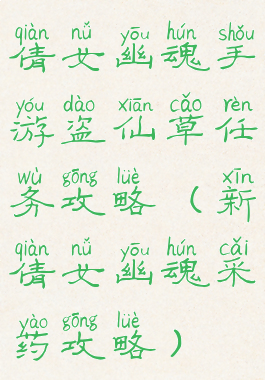 qiàn nǚ yōu hún shǒu
倩女幽魂手
yóu dào xiān cǎo rèn
游盗仙草任
wù gōng lüè xīn
务攻略（新
qiàn nǚ yōu hún cǎi
倩女幽魂采
yào gōng lüè
药攻略）